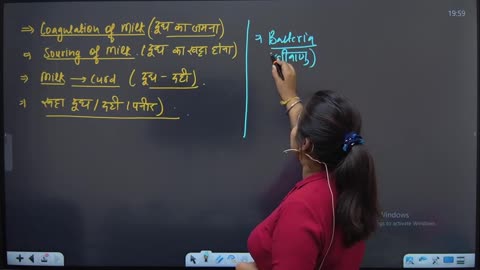 ⇒ Coagulation of Milk (दूध का जमना)
⇒ Souring of Milk. (दूध का खट्टा होना)
⇒ Milk → Curd (दूध - दही).
⇒ खट्टा दूध / दही / पनीर).
→ Bacteria
19:59
Windows
ngs to activate Windows.